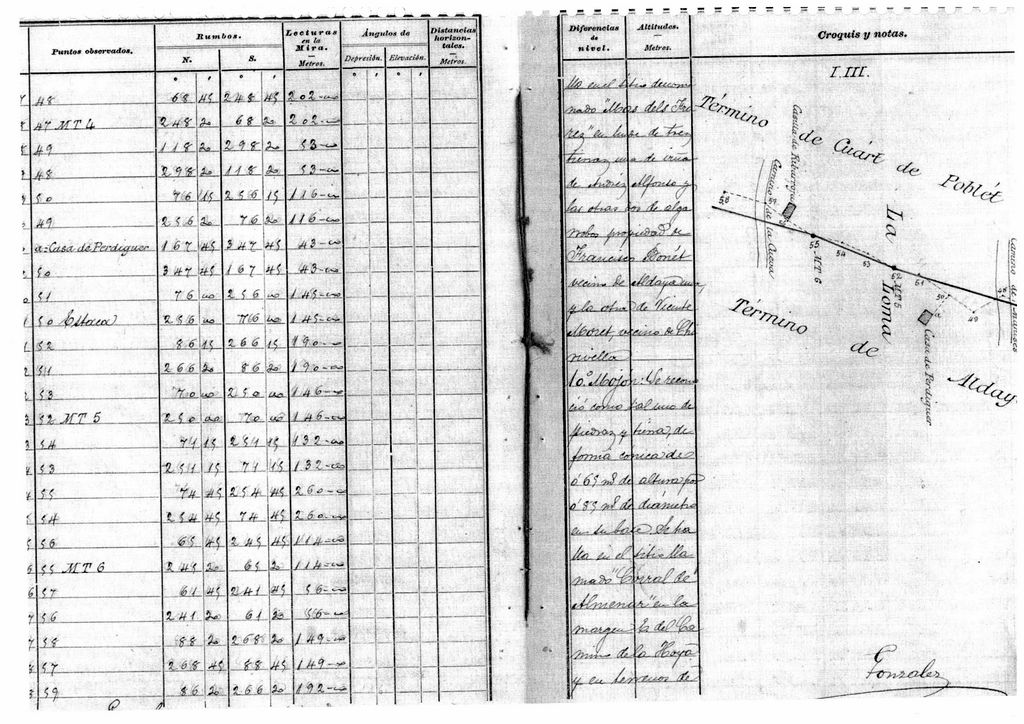 Puntos observados.
Rumbos.
N.
S.
Lecturas
en la
Mira.
Metros.
Ángulos de
Depresión.
Elevación.
Distancias
horizon-
tales.
Metros.
48 68 45 248 45 202-00
47 MT 4 248 20 68 20 202-00
49 118 20 298 20 53-00
48 298 20 118 20 53-00
50 76 15 256 15 116-00
49 256 20 76 20 116-00
a=Casa de Perdiguer 167 45 347 45 43-00
50 347 45 167 45 43-00
51 76 00 256 00 145-00
50 Estaca 256 00 76 00 145-00
52 86 15 266 15 190-00
51 266 20 86 20 190-00
53 70 00 250 00 146-00
52 MT 5 250 00 70 00 146-00
54 71 15 251 15 132-00
53 251 15 71 15 132-00
55 74 45 254 45 260-00
54 254 45 74 45 260-00
56 65 45 245 45 114-00
55 MT 6 245 20 65 20 114-00
57 61 45 241 45 56-00
56 241 20 61 20 56-00
58 88 20 268 20 149-00
57 268 45 88 45 149-00
59 86 20 266 20 192-00
Diferencias
de
nivel.
Altitudes.
Metros.
lla en el sitio denomi
nado "Mas dels Fra
rez" en linde de tres
tierras, una de
de Andrés Alfonso y
las otras dos de alga
rrobos propiedad de
Francisco Bonét
vecino de Aldaya una
y la otra de Vicente
Moret, vecino de Chi
rivella
10.º Mojon: Se recono
ció como tal uno de
piedras y tierra, de
forma conica de
0'65 m.s de altura por
0'85 m.s de diámetro
en su base Se ha
lla en el sitio lla
mado "Corral de
Almenar" en la
margen E. del Ca
mino de la Hoya
y en terrenos de
Croquis y notas.
I.III.
Término de Cuárt de Poblét
Casita de Ribarroja
Camino de la Cueva
58
57
55
MT 6
54
53
52
MT 5
51
50
a
49
48
La Loma
Casa de Perdiguer
Camino de
Término de Alday
Gonzalez